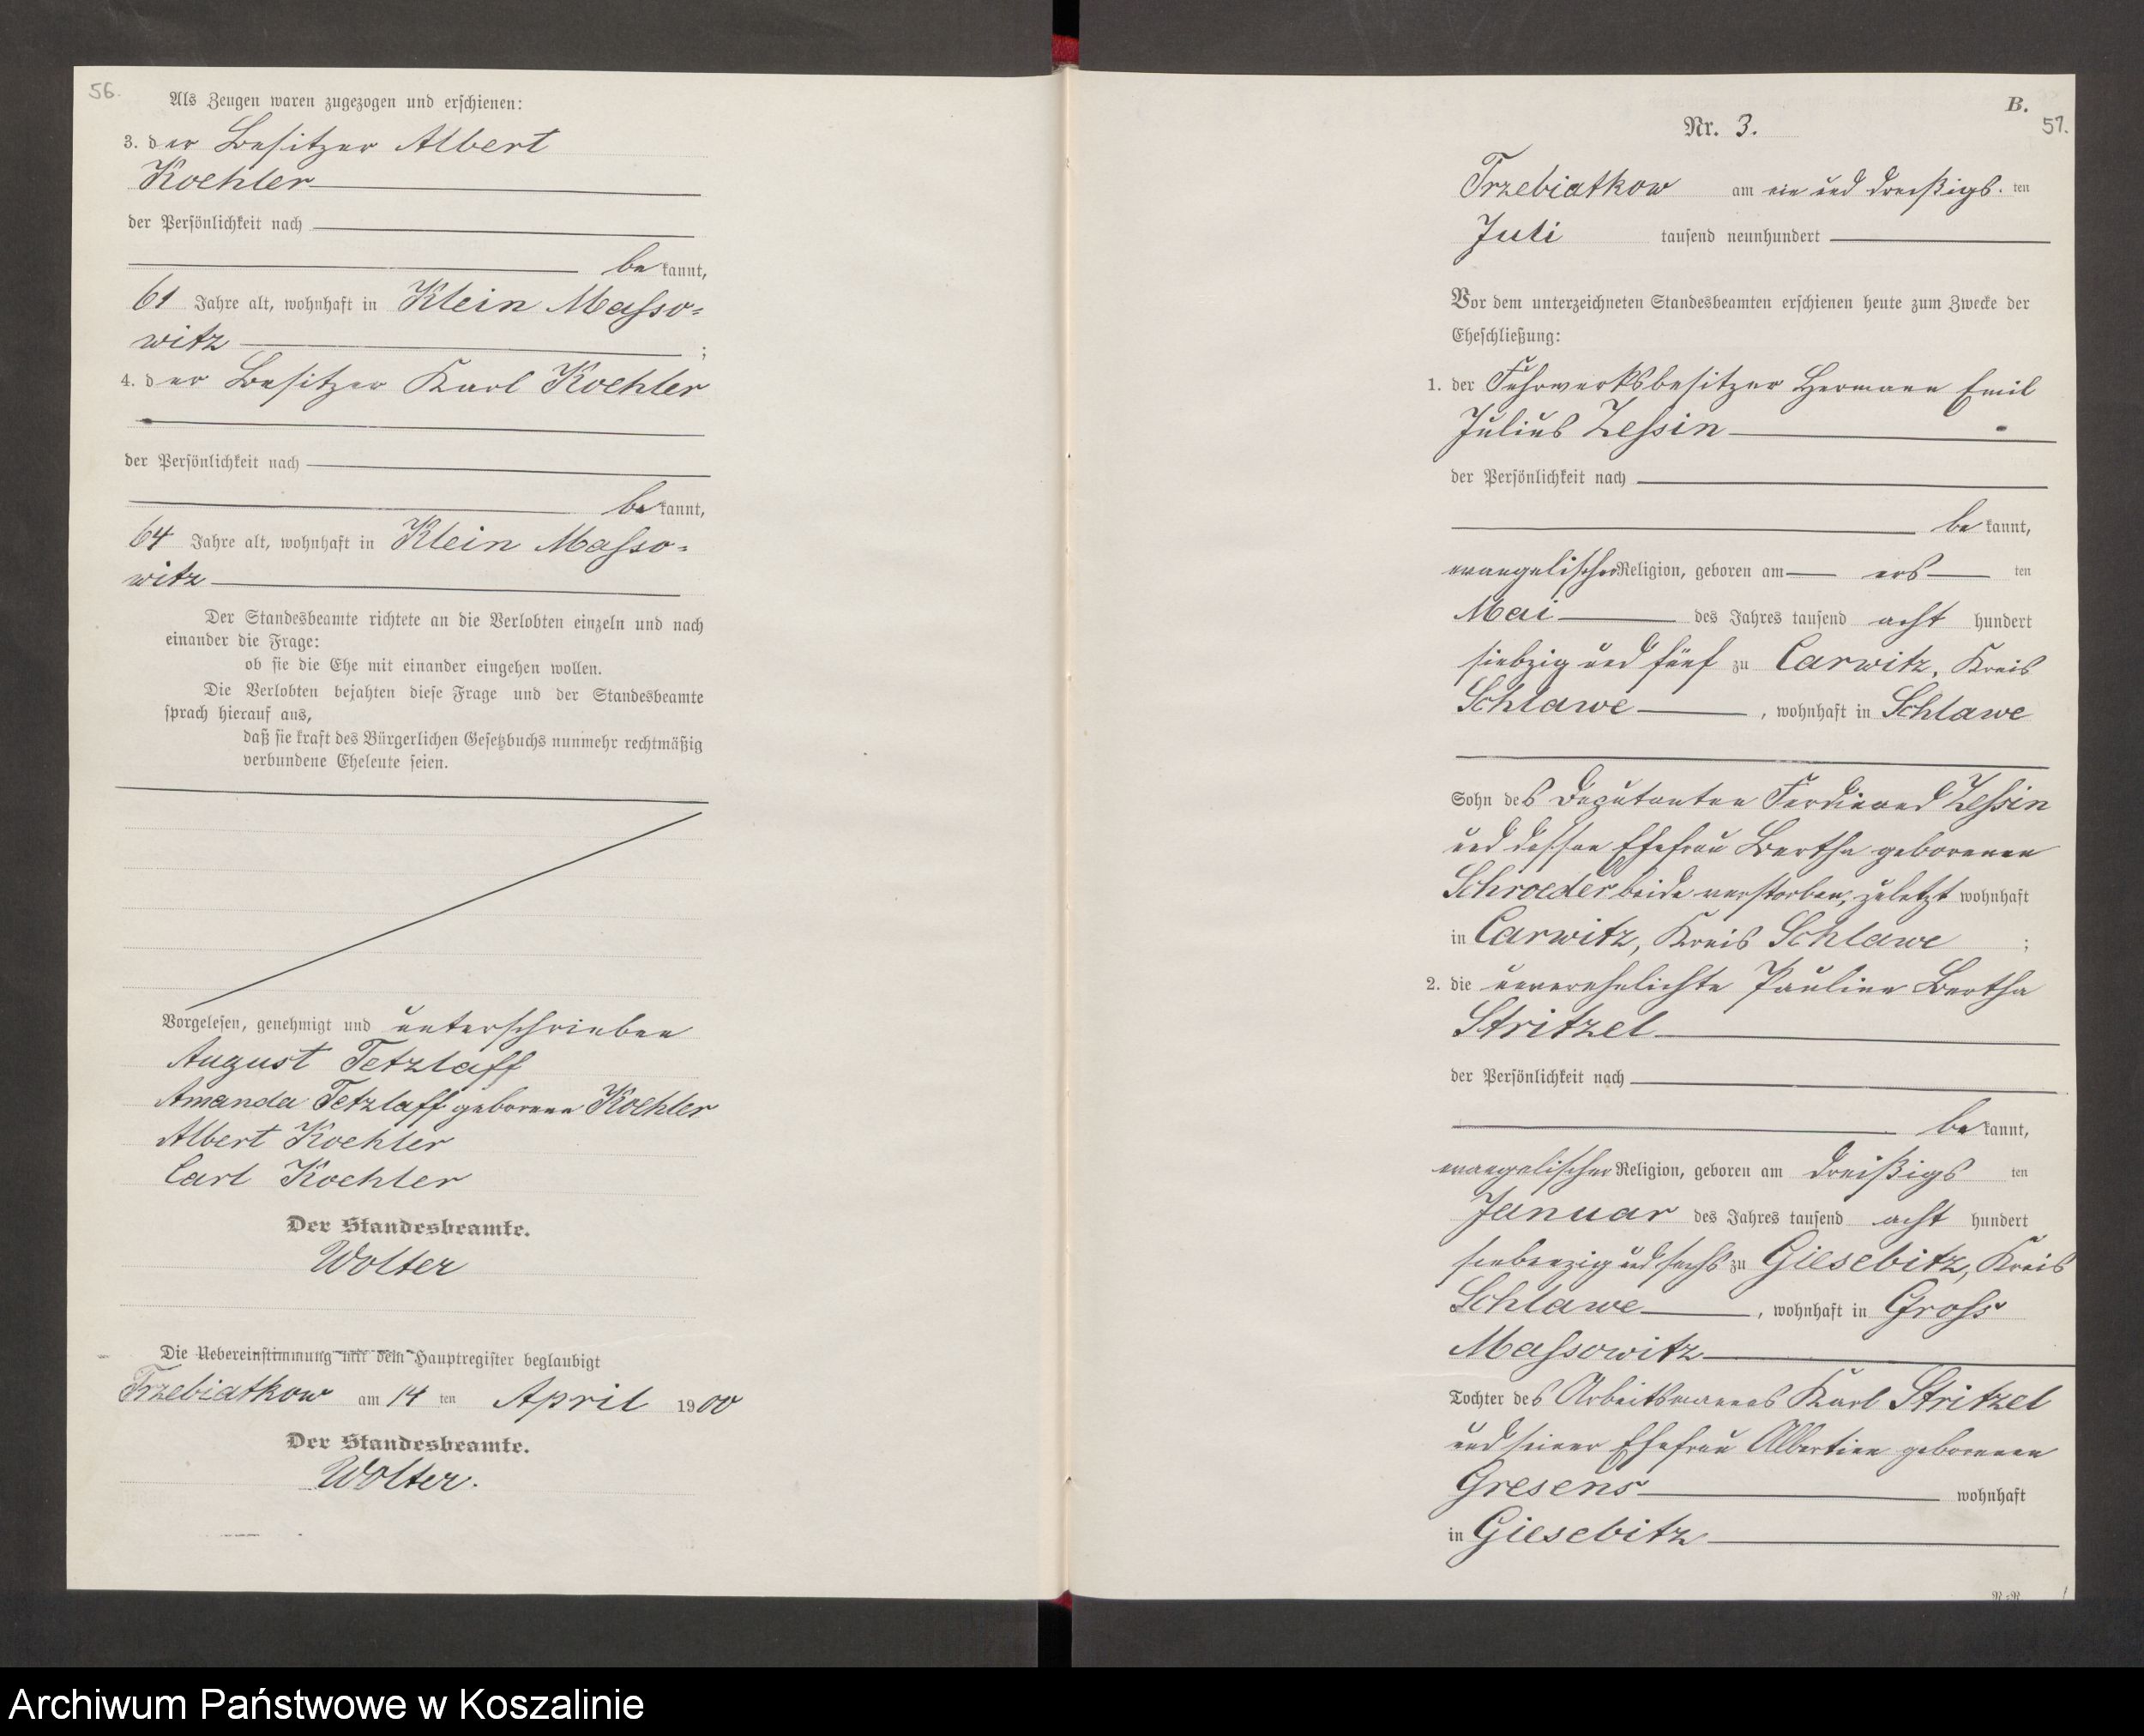 56.
Als Zeugen waren zugezogen und erschienen:
3. der Besitzer Albert
Koehler
der Persönlichkeit nach
bekannt,
61 Jahre alt, wohnhaft in Klein Masso=
witz ;
4. der Besitzer Karl Koehler
der Persönlichkeit nach
bekannt,
64 Jahre alt, wohnhaft in Klein Masso=
witz
Der Standesbeamte richtete an die Verlobten einzeln und nach
einander die Frage:
ob sie die Ehe mit einander eingehen wollen.
Die Verlobten bejahten diese Frage und der Standesbeamte
sprach hierauf aus,
daß sie kraft des Bürgerlichen Gesetzbuchs nunmehr rechtmäßig
verbundene Eheleute seien.
Vorgelesen, genehmigt und unterschrieben
August Tetzlaff
Amanda Tetzlaff geborene Koehler
Albert Koehler
Carl Koehler
Der Standesbeamte.
Wolter
Die Uebereinstimmung mit dem Hauptregister beglaubigt
Trzebiatkow am 14 ten April 1900
Der Standesbeamte.
Wolter.
B.
57.
Nr. 3.
Trzebiatkow am ein und dreißigs. ten
Juli tausend neunhundert
Vor dem unterzeichneten Standesbeamten erschienen heute zum Zwecke der
Eheschließung:
1. der Fuhrwerksbesitzer Hermann Emil
Julius Zessin
der Persönlichkeit nach
bekannt,
evangelischer Religion, geboren am ers ten
Mai des Jahres tausend acht hundert
siebzig und fünf zu Carwitz, Kreis
Schlawe , wohnhaft in Schlawe
Sohn des Deputanten Ferdinand Zessin
und dessen Ehefrau Bertha geborenen
Schroeder beide verstorben, zuletzt wohnhaft
in Carwitz, Kreis Schlawe ;
2. die unverehelichte Pauline Bertha
Stritzel
der Persönlichkeit nach
bekannt,
evangelischer Religion, geboren am dreißigs ten
Januar des Jahres tausend acht hundert
siebenzig und sechs zu Giesebitz, Kreis
Schlawe , wohnhaft in Gross
Massowitz
Tochter des Arbeitsmannes Karl Stritzel
und seiner Ehefrau Albertine geborenen
Gresens wohnhaft
in Giesebitz
Archiwum Państwowe w Koszalinie